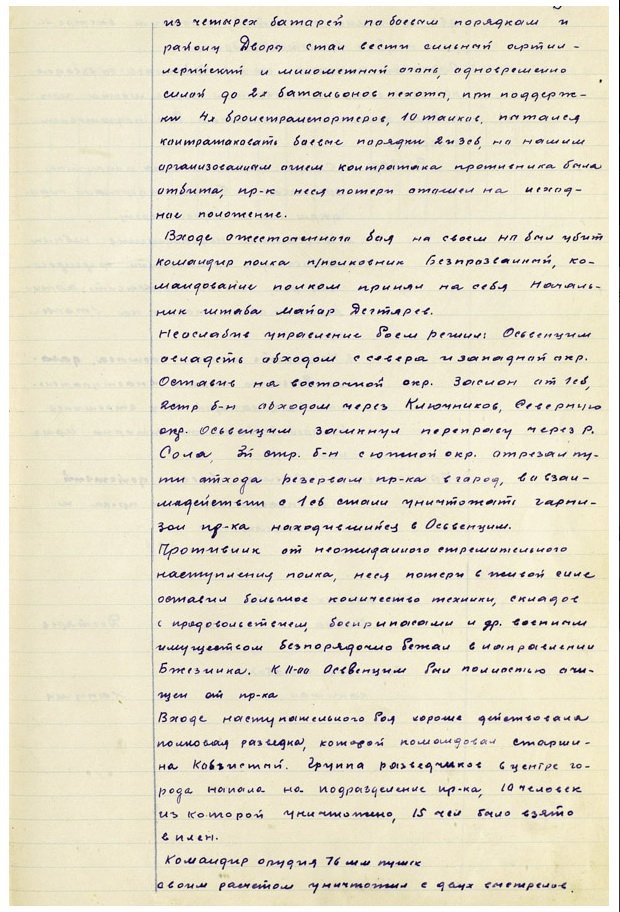 из четырех батарей по боевым порядкам и
району Дворы стал вести сильный артил-
лерийский и минометный огонь, одновременно
силой до 2х батальонов пехоты, при поддерж-
ки 4х бронетранспортеров, 10 танков, пытался
контратаковать боевые порядки 2 и 3сб, но нашим
организованным огнем контратака противника была
отбита, пр-к неся потери отошел на исход-
ное положение.
Входе ожесточенного боя на своем НП был убит
командир полка п/полковник Безпрозванный, ко-
мандование полком принял на себя Началь-
ник штаба майор Дегтярев.
Неослабив управление боем решил: Освенцим
овладеть обходом с севера и западной окр.
Оставив на восточной окр. Заслон от 1сб,
2стр б-н обходом через Ключников, Северную
окр. Освенцим замкнул переправу через р.
Сола, 3й стр. б-н с южной окр. отрезал пу-
ти отхода резервам пр-ка в город, во взаи-
модействии с 1сб стали уничтожать гарни-
зон пр-ка находившийся в Освенцим.
Противник от неожиданного стремительного
наступления полка, неся потери в живой силе
оставил большое количество техники, складов
с продовольствием, боеприпасами и др. военным
имуществом безпорядочно бежал в направлении
Бжезинка. К 11-00 Освенцим был полностью очи-
щен от пр-ка
Входе наступательного боя хорошо действовала
полковая разведка, которой командовал старши-
на Группа разведчиков в центре го-
рода напала на подразделение пр-ка, 10 человек
из которой уничтожено, 15 чел было взято
в плен.
Командир орудия 76 мм пушек
своим расчетом уничтожил с двух выстрелов